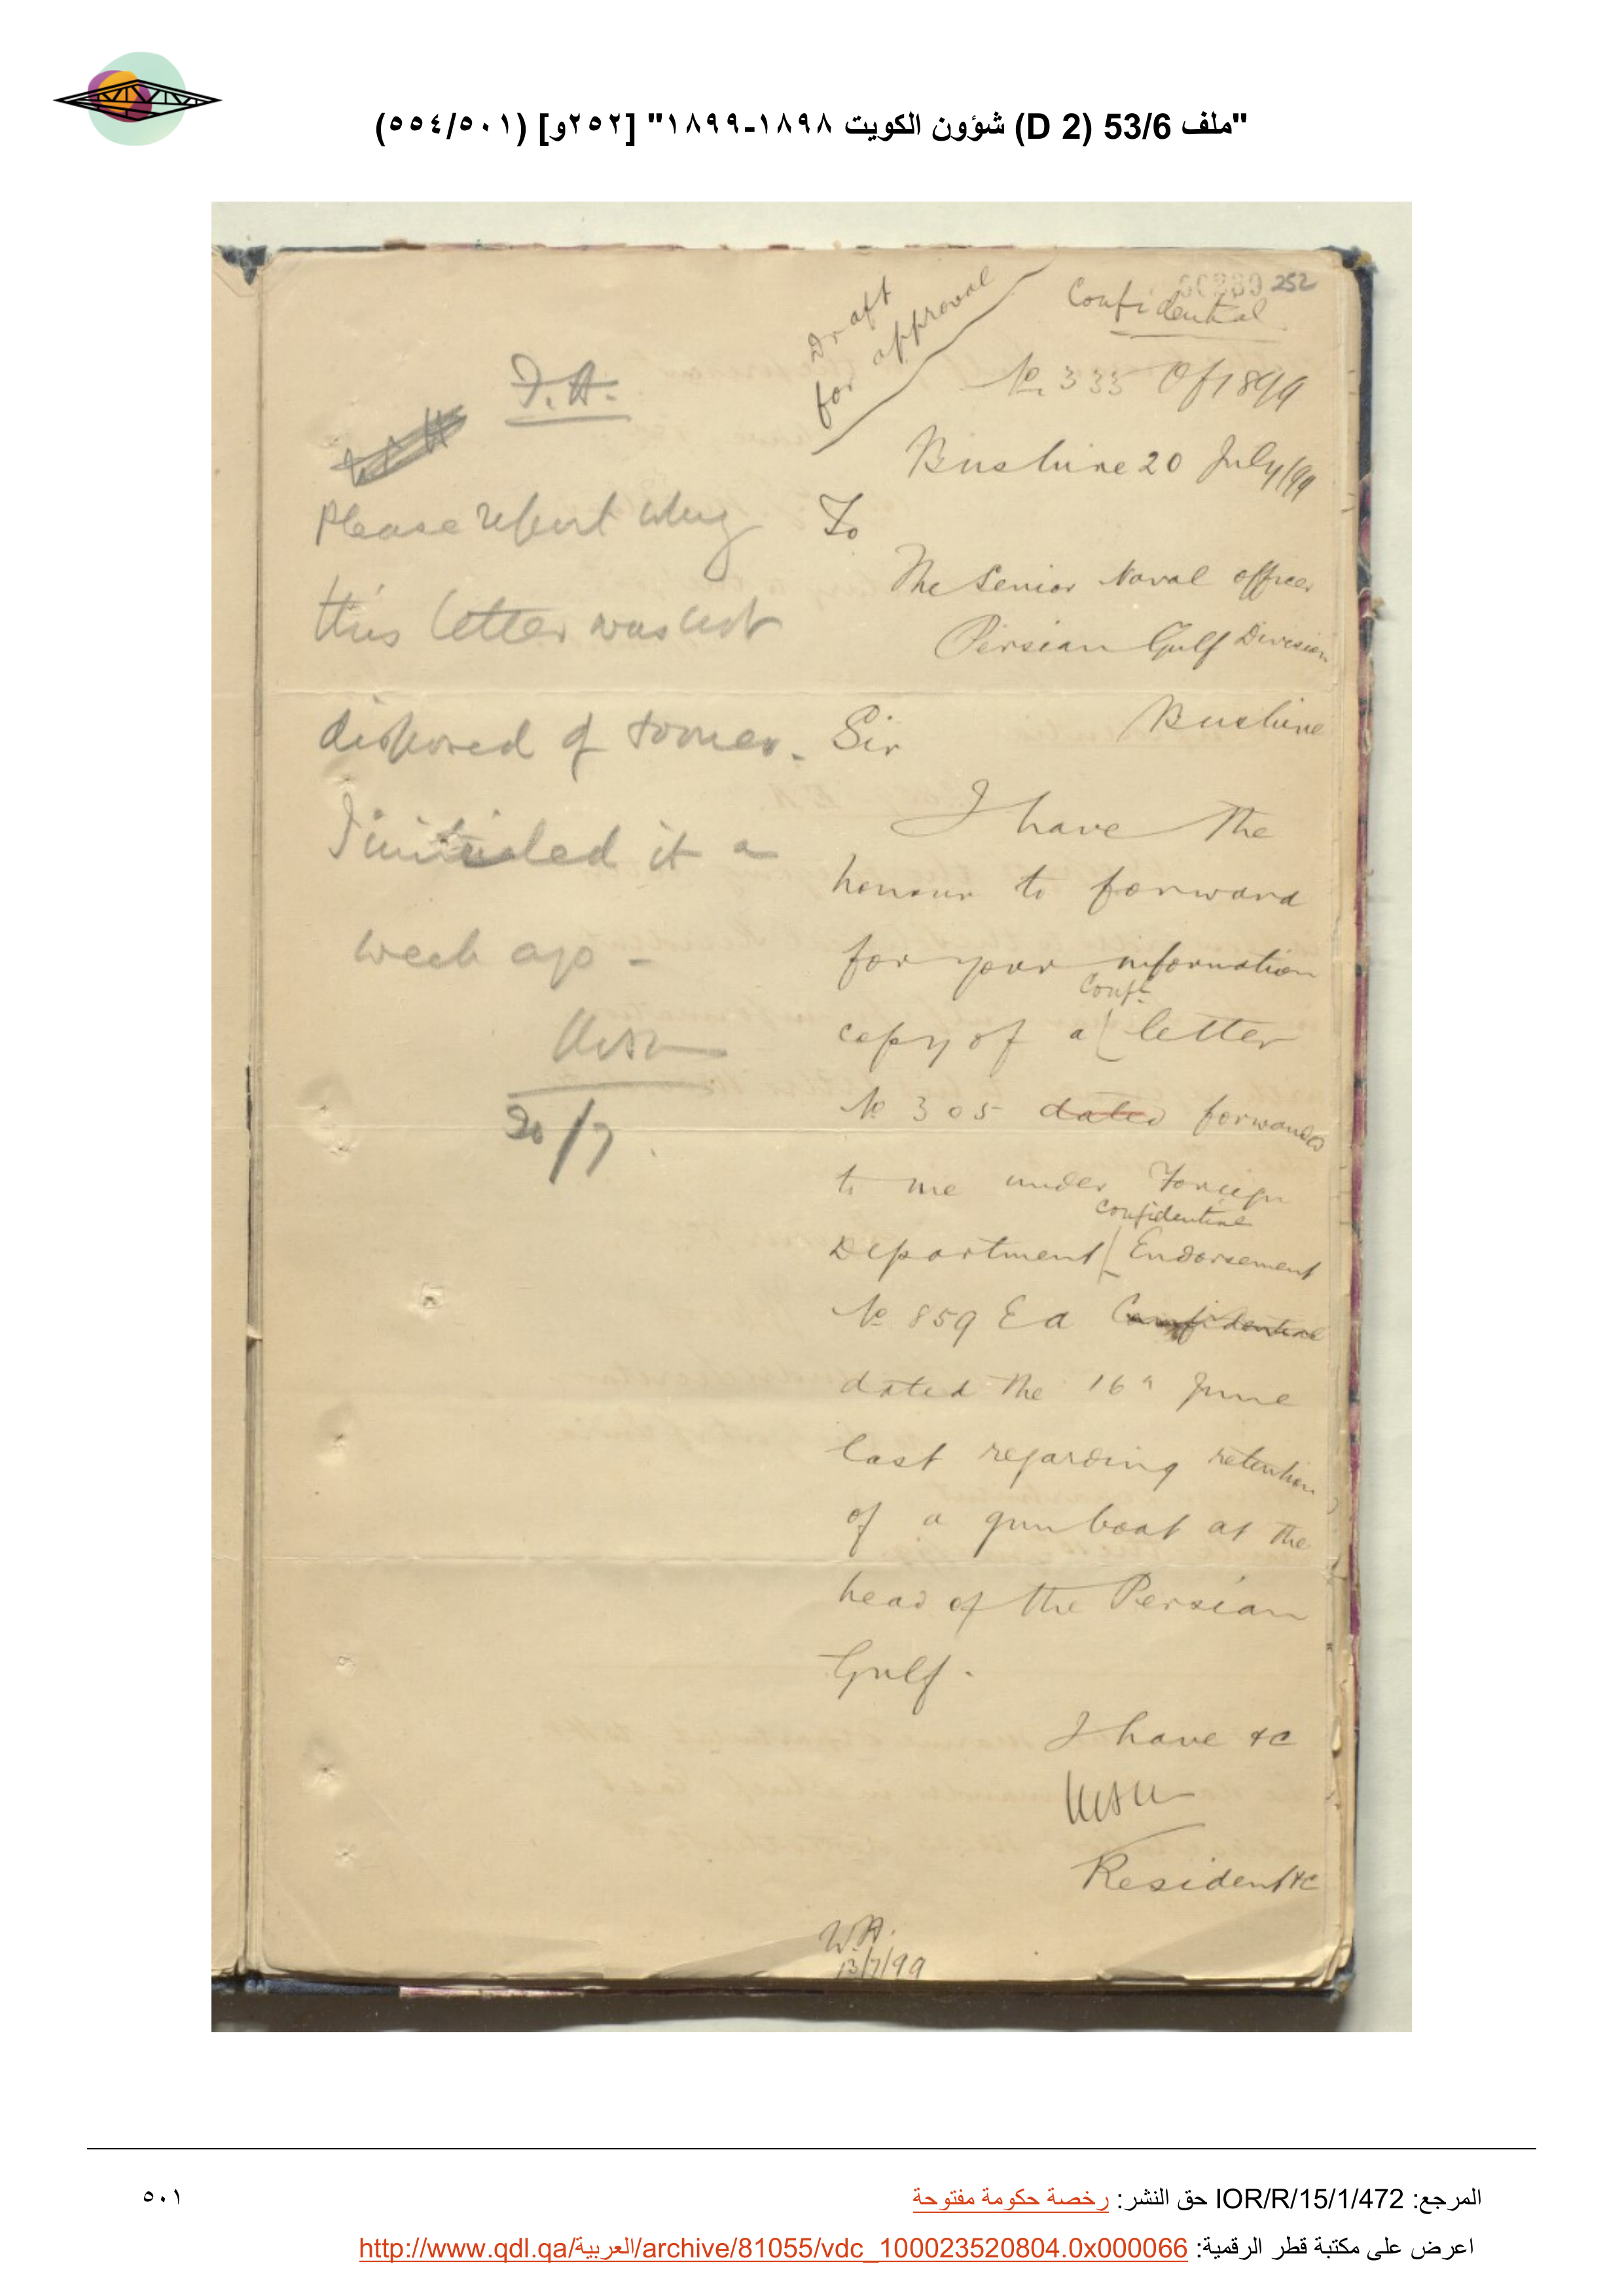 "ملف 53/6 (D 2) شؤون الكويت ١٨٩٨-١٨٩٩" [٢٥٢و] (٥٠١/٥٥٤)
Draft
for approval
Confidential
252
No. 335 Of 1899
Bushire 20 July/99
To
The Senior Naval officer
Persian Gulf Division
Bushire
Sir
I have the
honour to forward
for your information
Confl.
copy of a letter
No 305 dated forwarded
to me under Foreign
Confidential
Department Endorsement
No 859 Ea Confidential
dated the 16th June
last regarding retention
of a gun boat at the
head of the Persian
Gulf.
I have &c
Resident &c
W.H.
13/7/99
F.A.
Please report why
this letter was not
disposed of sooner.
I initialed it a
week ago -
20/7.
المرجع: IOR/R/15/1/472 حق النشر: رخصة حكومة مفتوحة
٥٠١
اعرض على مكتبة قطر الرقمية: http://www.qdl.qa/العربية/archive/81055/vdc_100023520804.0x000066